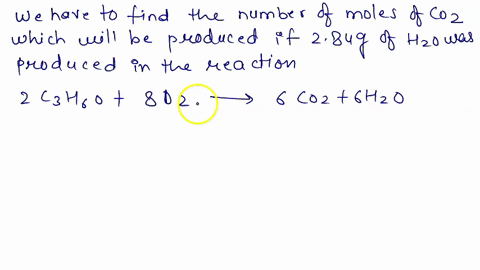 we have to find the number of moles of CO2
which will be produced if 2.84g of H2O was
produced in the reaction
2 C3H6O + 8O2. → 6 CO2 + 6H2O